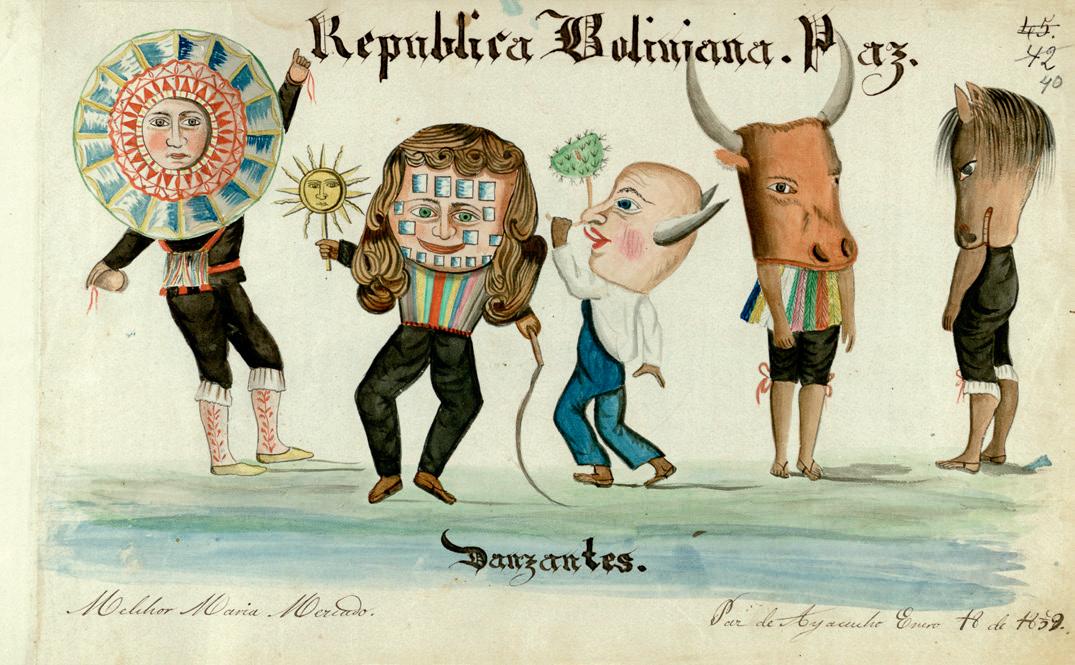 Republica Boliviana. Paz.
45.
42
40
Danzantes.
Melchor Maria Mercado.
Paz de Ayacucho Enero 18 de 1859.